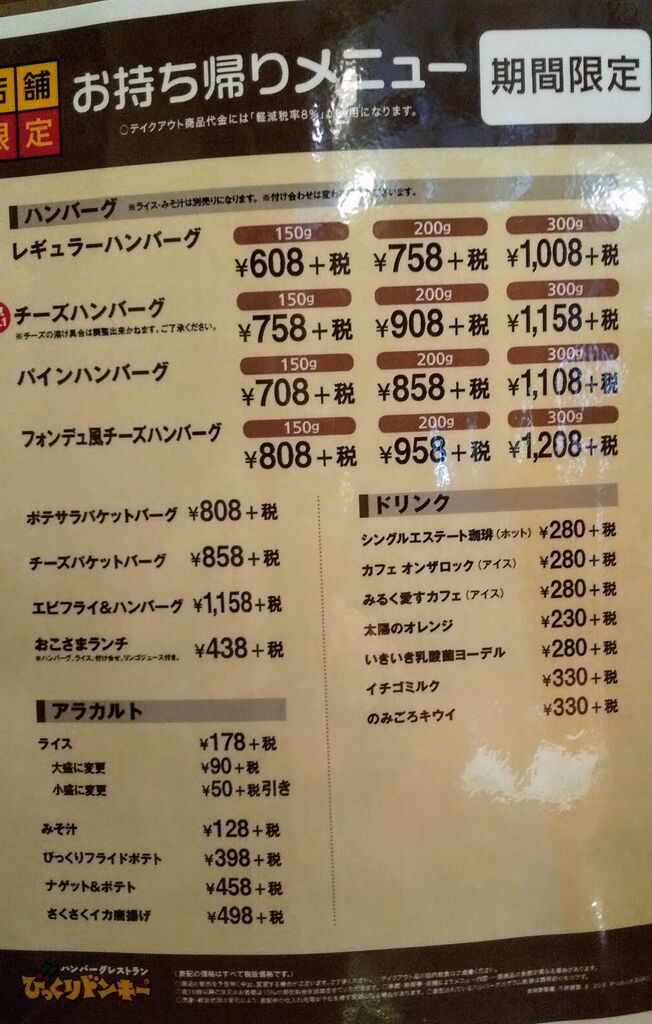 店舗
限定
お持ち帰りメニュー
期間限定
○テイクアウト商品代金には「軽減税率8%」が適用になります。
ハンバーグ ※ライス・みそ汁は別売りになります。 ※付け合わせは変わる ございます。
レギュラーハンバーグ
150g 200g 300g
¥608+税 ¥758+税 ¥1,008+税
チーズハンバーグ
※チーズの溶け具合は調整出来かねます。ご了承ください。
150g 200g 300g
¥758+税 ¥908+税 ¥1,158+税
パインハンバーグ
150g 200g 300g
¥708+税 ¥858+税 ¥1,108+税
フォンデュ風チーズハンバーグ
150g 200g 300g
¥808+税 ¥958+税 ¥1,208+税
ポテサラバケットバーグ ¥808+税
チーズバケットバーグ ¥858+税
エビフライ&ハンバーグ ¥1,158+税
おこさまランチ ¥438+税
※ハンバーグ、ライス、付け合せ、リンゴジュース付き。
アラカルト
ライス ¥178+税
大盛に変更 ¥90+税
小盛に変更 ¥50+税引き
みそ汁 ¥128+税
びっくりフライドポテト ¥398+税
ナゲット&ポテト ¥458+税
さくさくイカ唐揚げ ¥498+税
ドリンク
シングルエステート珈琲(ホット) ¥280+税
カフェ オンザロック(アイス) ¥280+税
みるく愛すカフェ(アイス) ¥280+税
太陽のオレンジ ¥230+税
いきいき乳酸菌ヨーデル ¥280+税
イチゴミルク ¥330+税
のみごろキウイ ¥330+税
ハンバーグレストラン
びっくりドンキー
(表記の価格はすべて税抜価格です。)